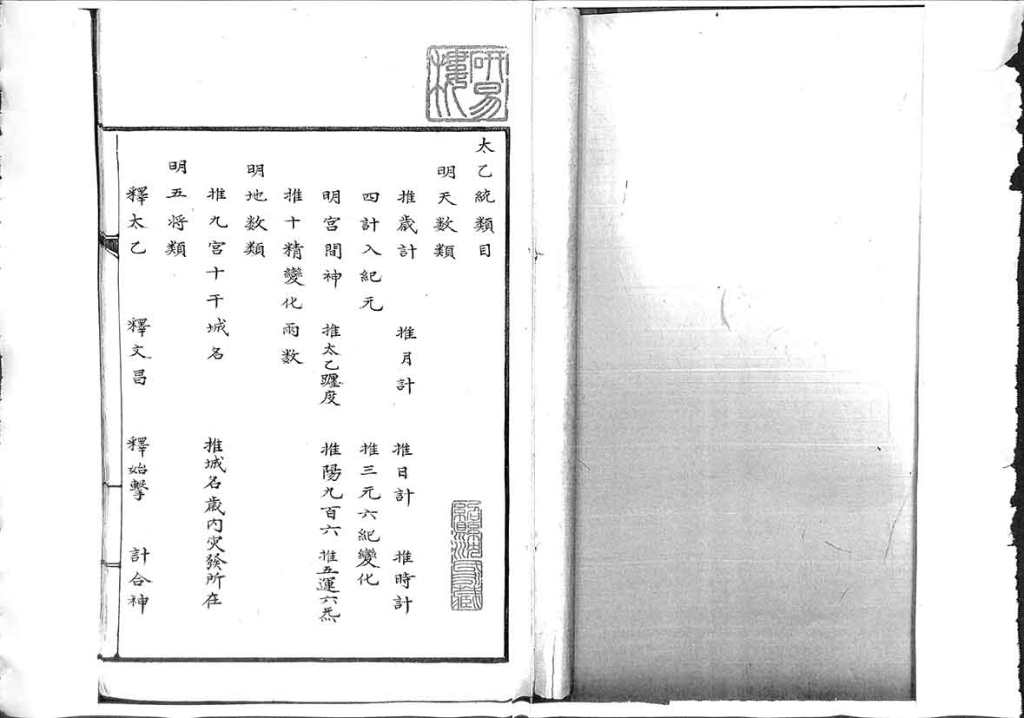 研易樓
太乙統類目
明天数類
推歳計 推月計 推日計 推時計
四計入紀元 推三元六紀變化
明宫間神 推太乙躔度 推陽九百六 推五運六炁
推十精變化雨数
明地数類
推九宫十干城名 推城名歳内灾發所在
明五将類
釋太乙 釋文昌 釋始擊 計合神